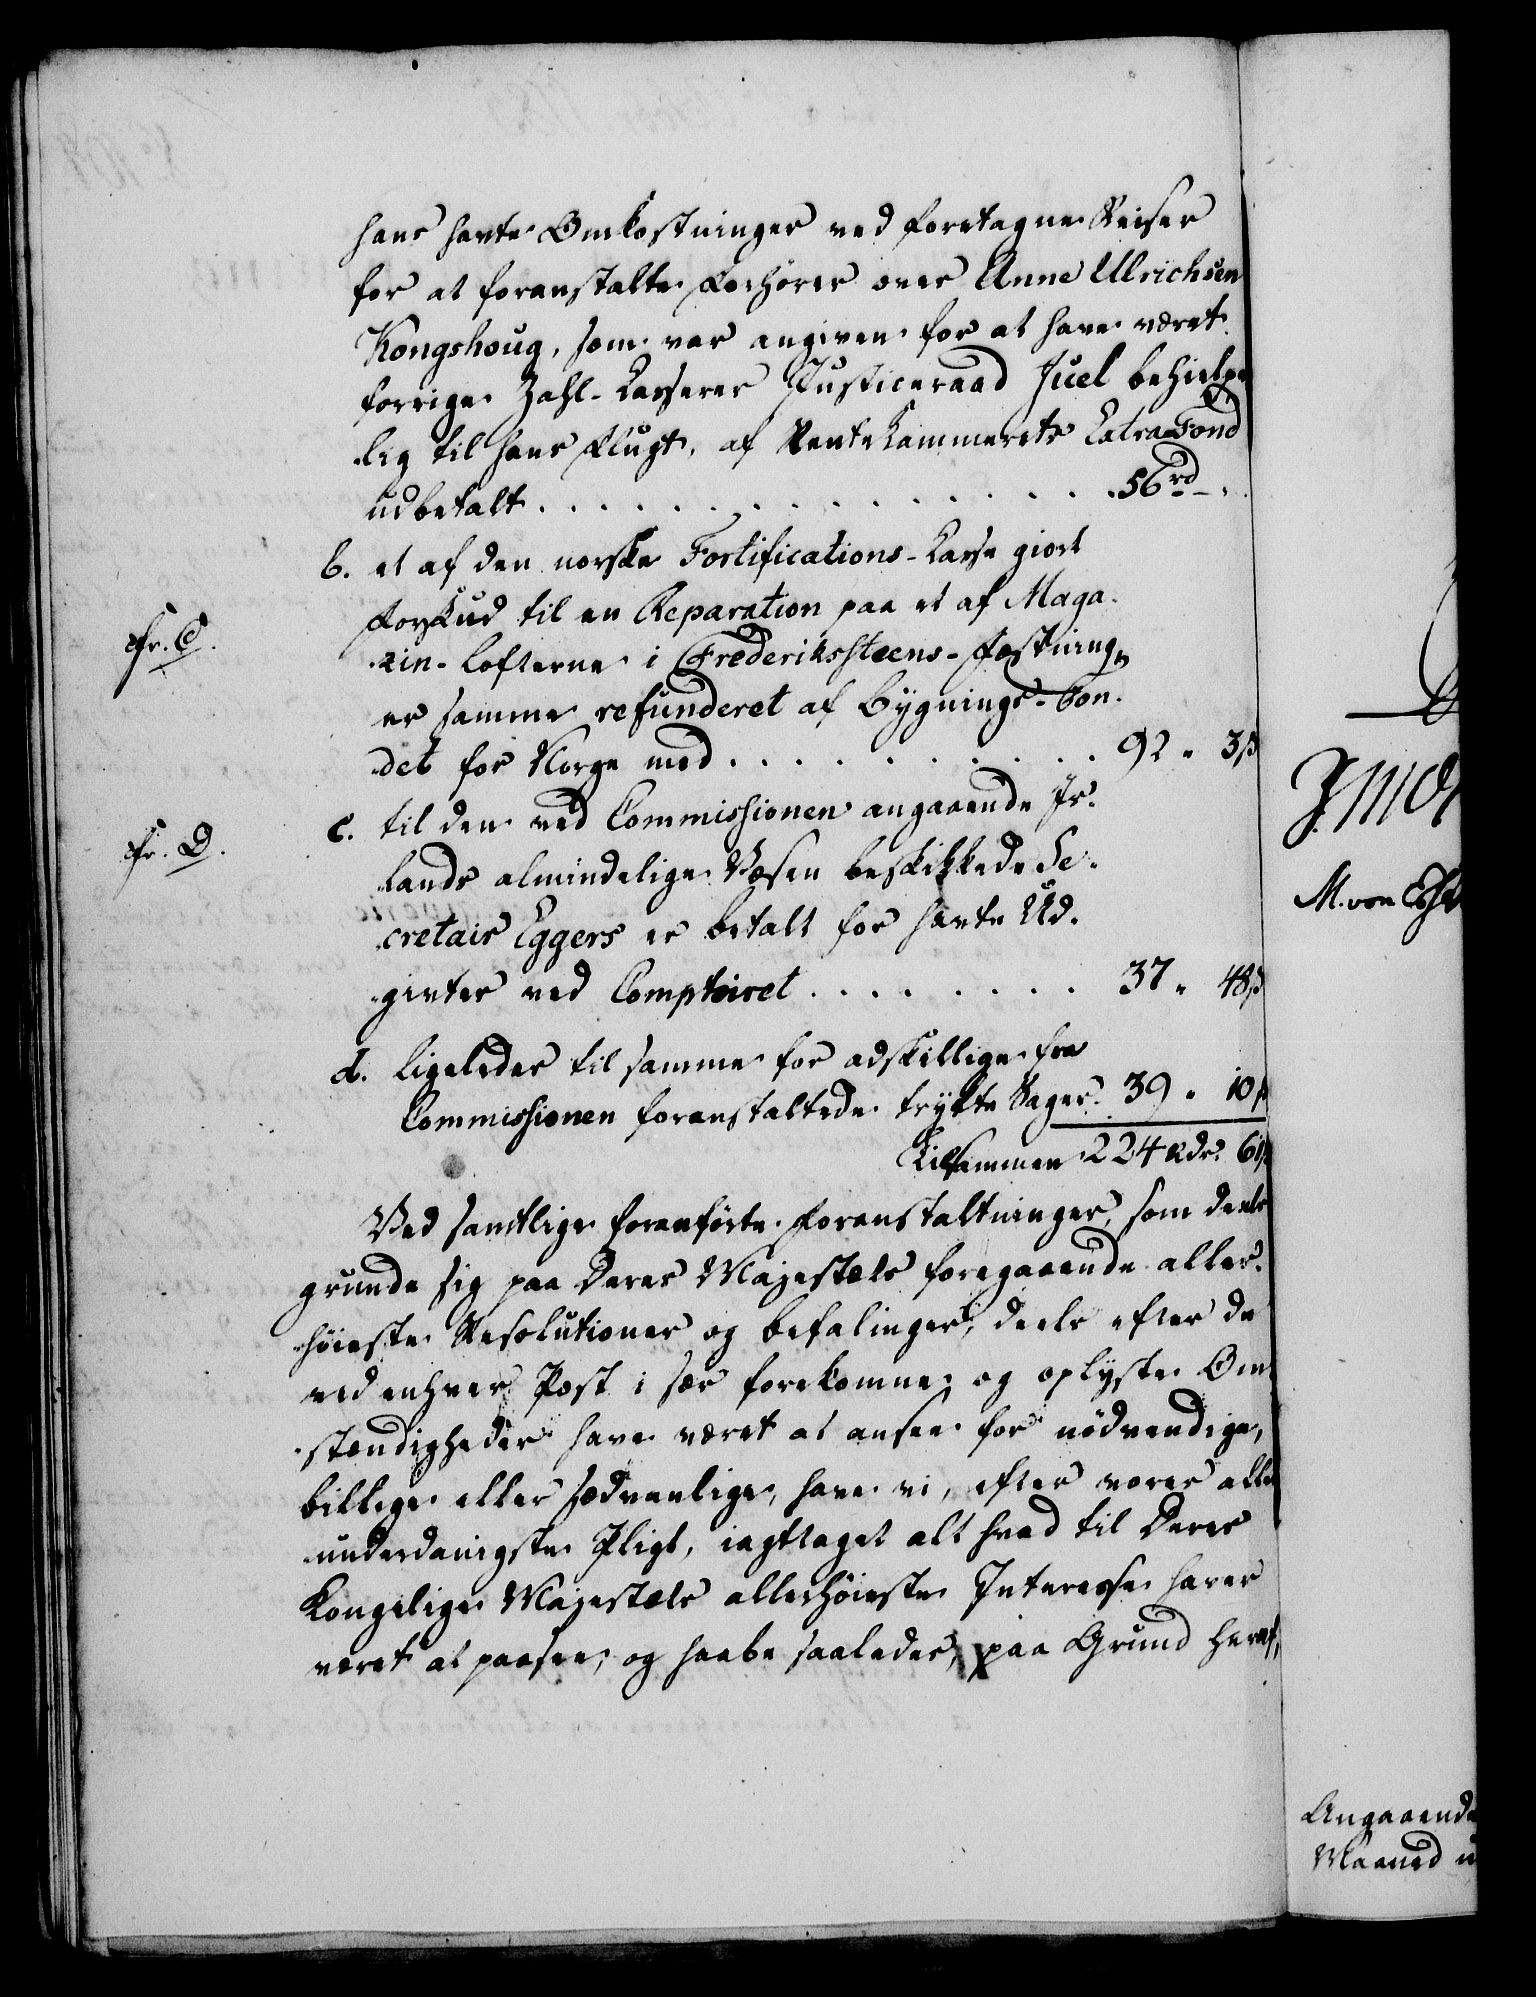 hans havte Omkostninger ved foretagne Reiser
for at foranstalte Forhörer over Anne Ulrichsen
Kongshoug, som var angiven for at have været
forrige Zahl-Casserer Justiceraad Juel behielpe
lig til hans Flugt, af RenteKammerets Extra Fond
udbetalt . . . . . . . . . . . . . . . . 56 rd - .
b. et af den norske Fortifications-Casse giort
Forskud til en Reparation paa et af Maga-
cfr. C.
zin-Lofterne i Frederiksteens-Fæstning,
er samme refunderet af Bygnings-Fon-
det for Norge med . . . . . . . . . . . 92 " 3 ß
cfr. D.
c. til den ved Commissionen angaaende Is-
lands almindelige Væsen beskikkede Se-
cretair Eggers er betalt for havte Ud-
givter ved Comptoiret . . . . . . . . 37 " 48 ß
d. ligeledes til samme for adskillige fra
Commissionen foranstaltede trykte Sager. 39 " 10 ß
Tilsammen 224 Rdr. 61 ß
Ved samtlige foranförte Foranstaltninger, som deels
grunde sig paa Deres Majestæts foregaaende aller-
höieste Resolutioner og Befalinger, deels efter de
ved enhver Post i sær forekomne og oplyste Om-
stændigheder have været at ansee for nödvendige,
billige eller sædvanlige, have vi, efter vores aller
underdanigste Pligt, iagttaget alt hvad til Deres
Kongelige Majestæts allerhöieste Interesse haver
været at paasee, og haabe saaledes, paa Grund heraf,
M. von
Angaaende
Maaned